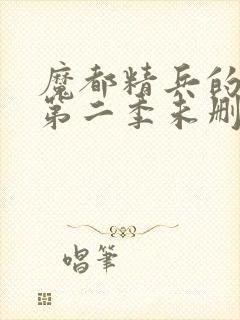 魔都精兵的
第二季未删
唱筆